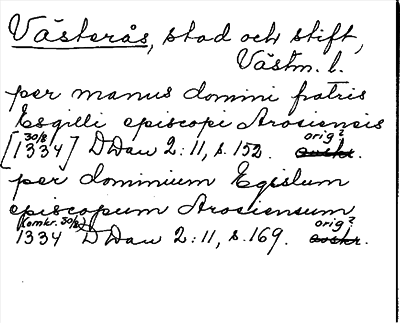 Västerås, stad och stift,
Västm. l.
per manus domini fratris
Esgilli episcopi Arosiensis
[30/8 1334] DDan 2:11, s. 152. orig?
per dominium Egislum
episcopum Arosiensum
(omkr. 30/8)
1334 DDan 2:11, s. 169. orig?